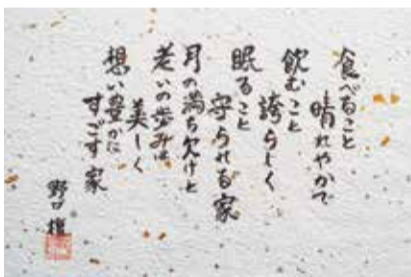 食べること
晴れやかで
飲むこと
誇らしく
眠ること
守られる家
月の満ち欠けと
老いの歩みは
美しく
想い豊かに
すごす家
野口